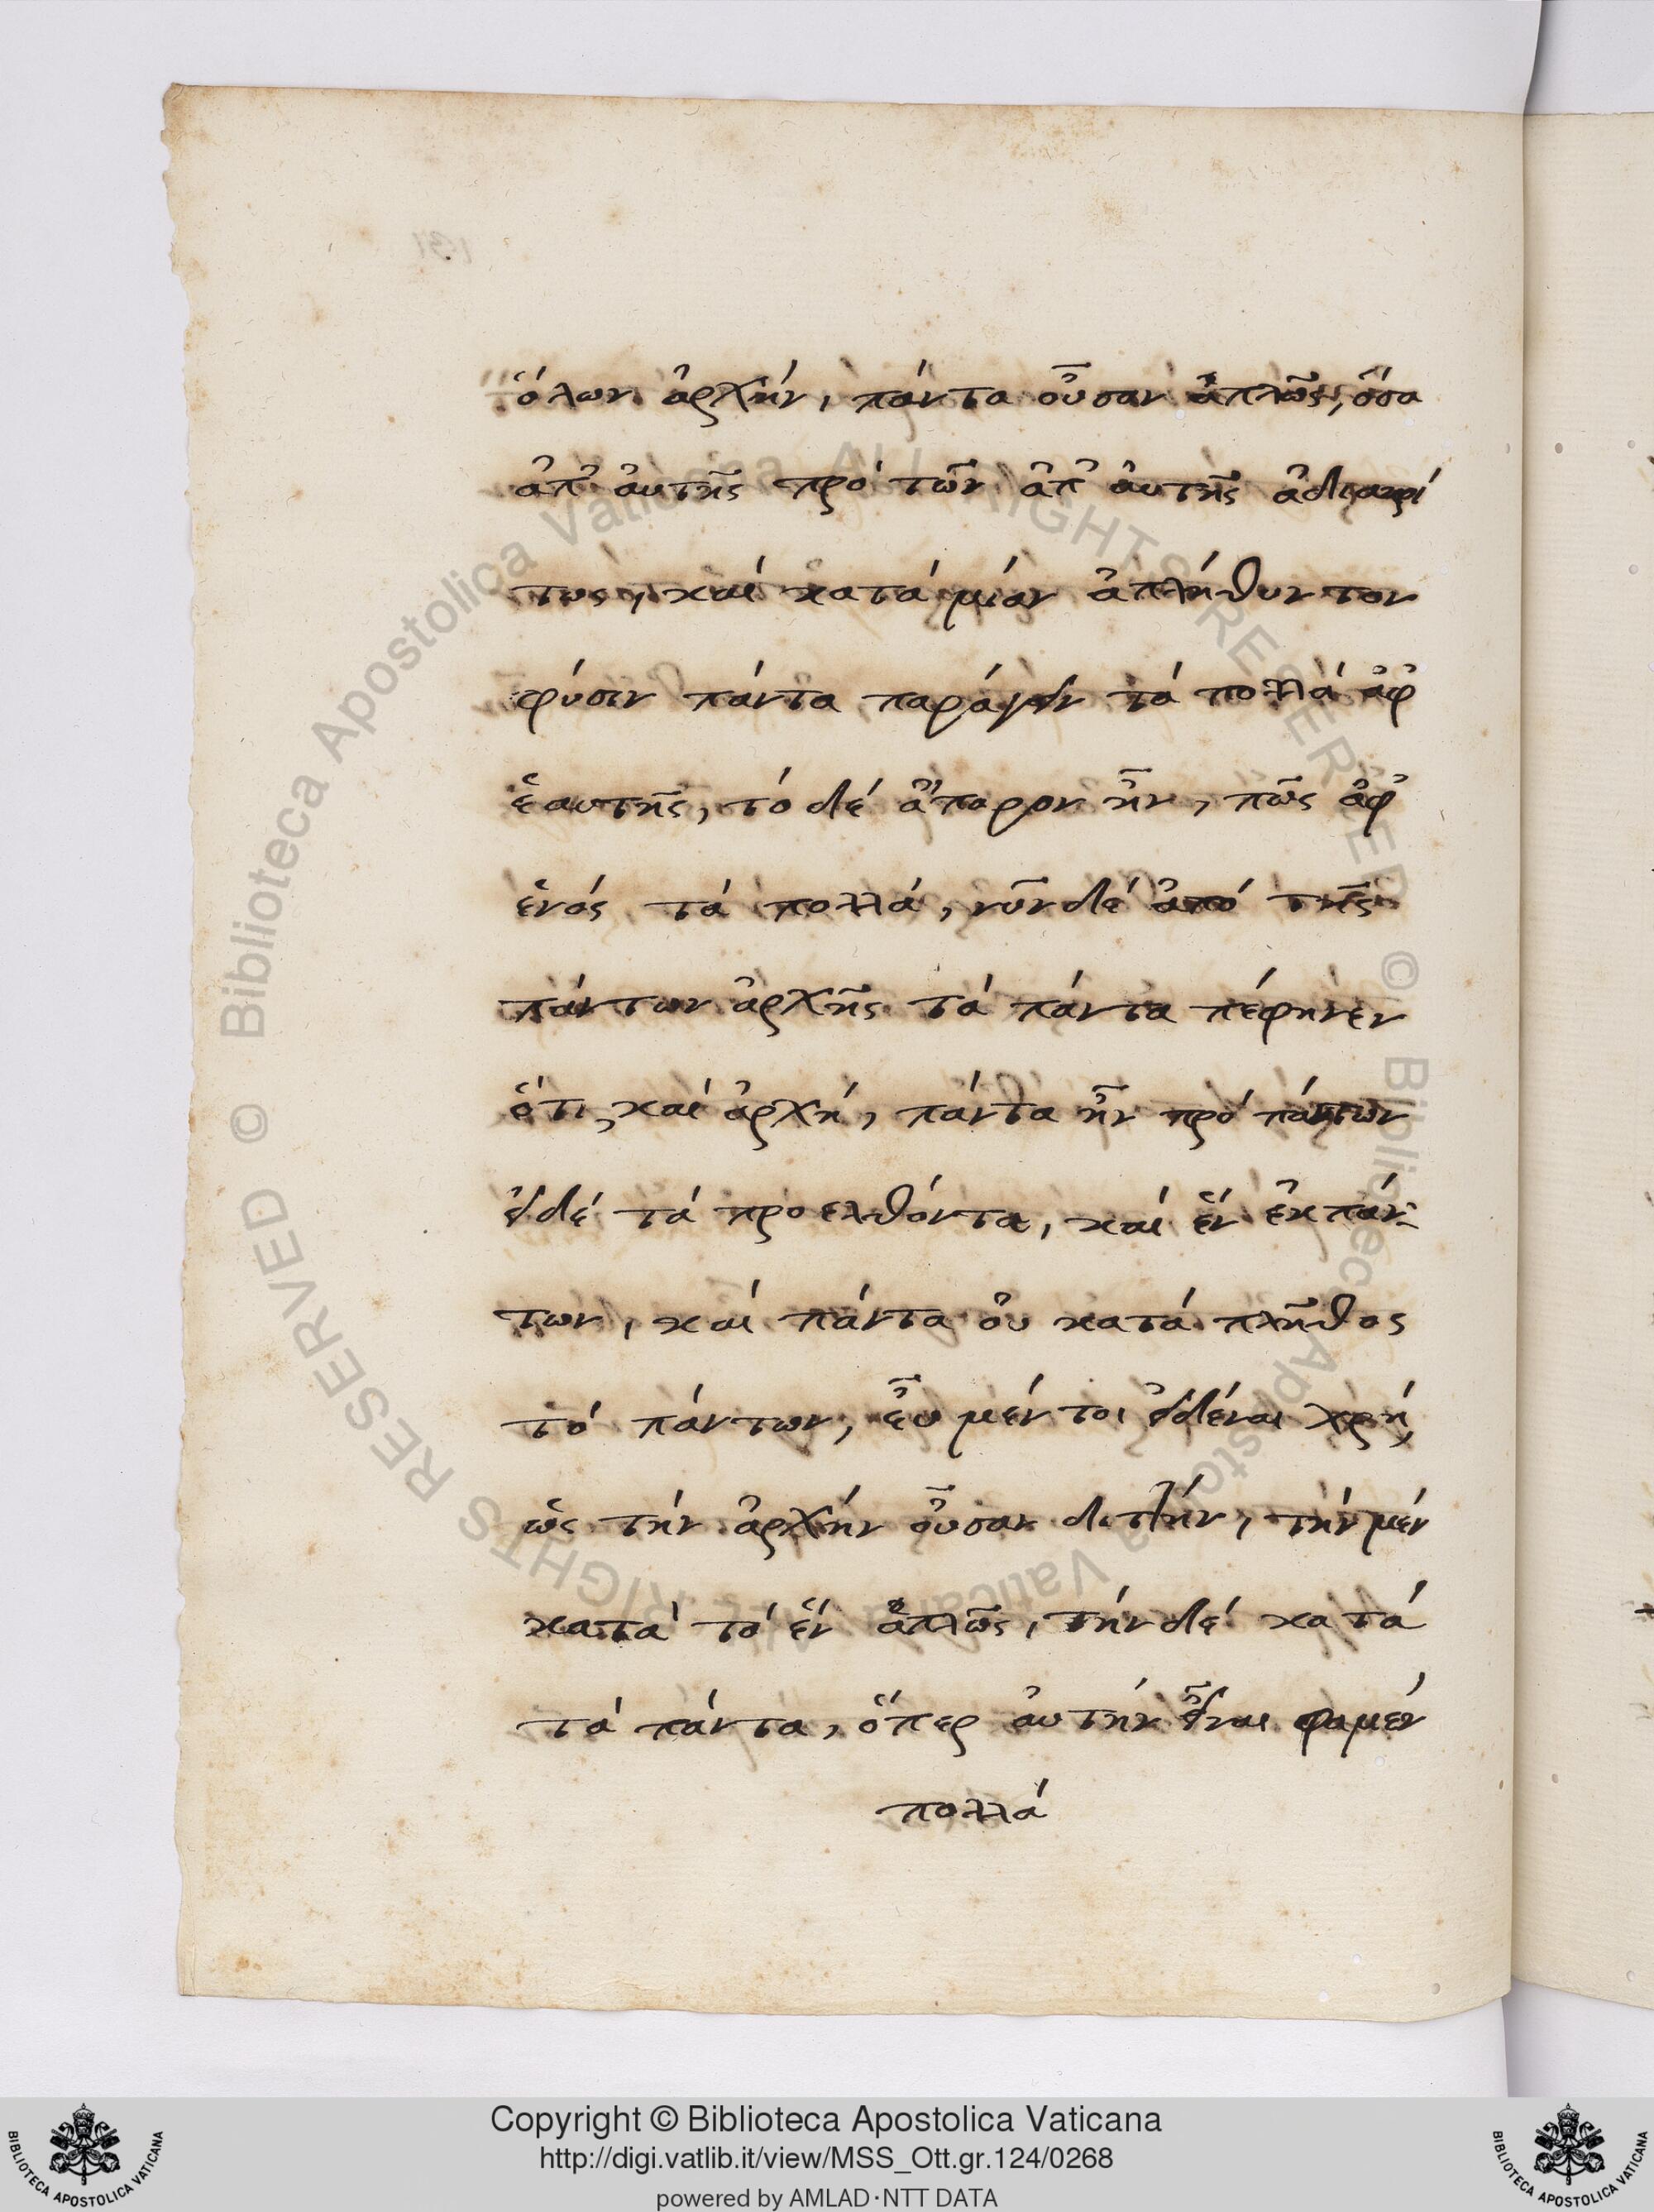 ὅλων ἀρχήν, πάντα οὖσαν ἁπλῶς, ὅσα
ἀπ' ἀυτῆς πρό τῶν ἀπ' ἀυτῆς ἀδιακρί
τως, καί κατά μίαν ἀπλήθυντον
φύσιν πάντα παράγειν τά πολλά ἀφ'
ἑαυτῆς, τό δέ ἄπορον ἦν, πῶς ἀφ'
ἑνός τά πολλά, νῦν δέ ἀπό τῆς
πάντων ἀρχῆς τά πάντα πέφηνεν
ὅτι καί ἀρχή, πάντα ἦν πρό πάντων
εἰ δέ τά προελθόντα, καί ἕν ἐκ πάν-
των, καί πάντα οὐ κατά πλῆθος
τό πάντων, εὖ μέντοι εἰδέναι χρή,
ὡς τήν ἀρχήν οὖσαν διτλήν, τήν μέν
κατά τό ἕν ἁπλῶς, τήν δέ κατά
τά πάντα, ὅπερ ἀυτήν εἶναι φαμέν
πολλά
Copyright © Biblioteca Apostolica Vaticana
http://digi.vatlib.it/view/MSS_Ott.gr.124/0268
powered by AMLAD·NTT DATA
BIBLIOTECA APOSTOLICA VATICANA
BIBLIOTECA APOSTOLICA VATICANA
© Biblioteca Apostolica Vaticana ALL RIGHTS RESERVED
© Biblioteca Apostolica Vaticana ALL RIGHTS RESERVED